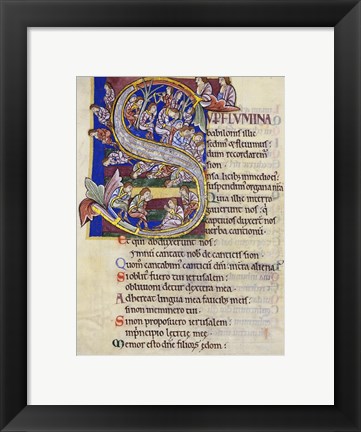 SUP FLUMINA
babilonis illic
sedim⁊ ⁊ fleuimus:
dum recordarem
sion
Insalicib; inmedio ei:
suspendim organa nra
Quia illic interro
gauerunt nos: q
captiuos duxert nos
uerba cantionū:
Et qui abduxerunt nos:
ymnū cantate nob de canticis sion
Quom cantabim canticū dni: in tra aliena
Si oblit fuero tui ierusalem:
obliuioni detur dextera mea
Adhereat lingua mea faucib; meis:
si non meminero tui
Si non proposuero ierusalem:
inprincipio leticie mee
Memor esto dne filiorū edom: